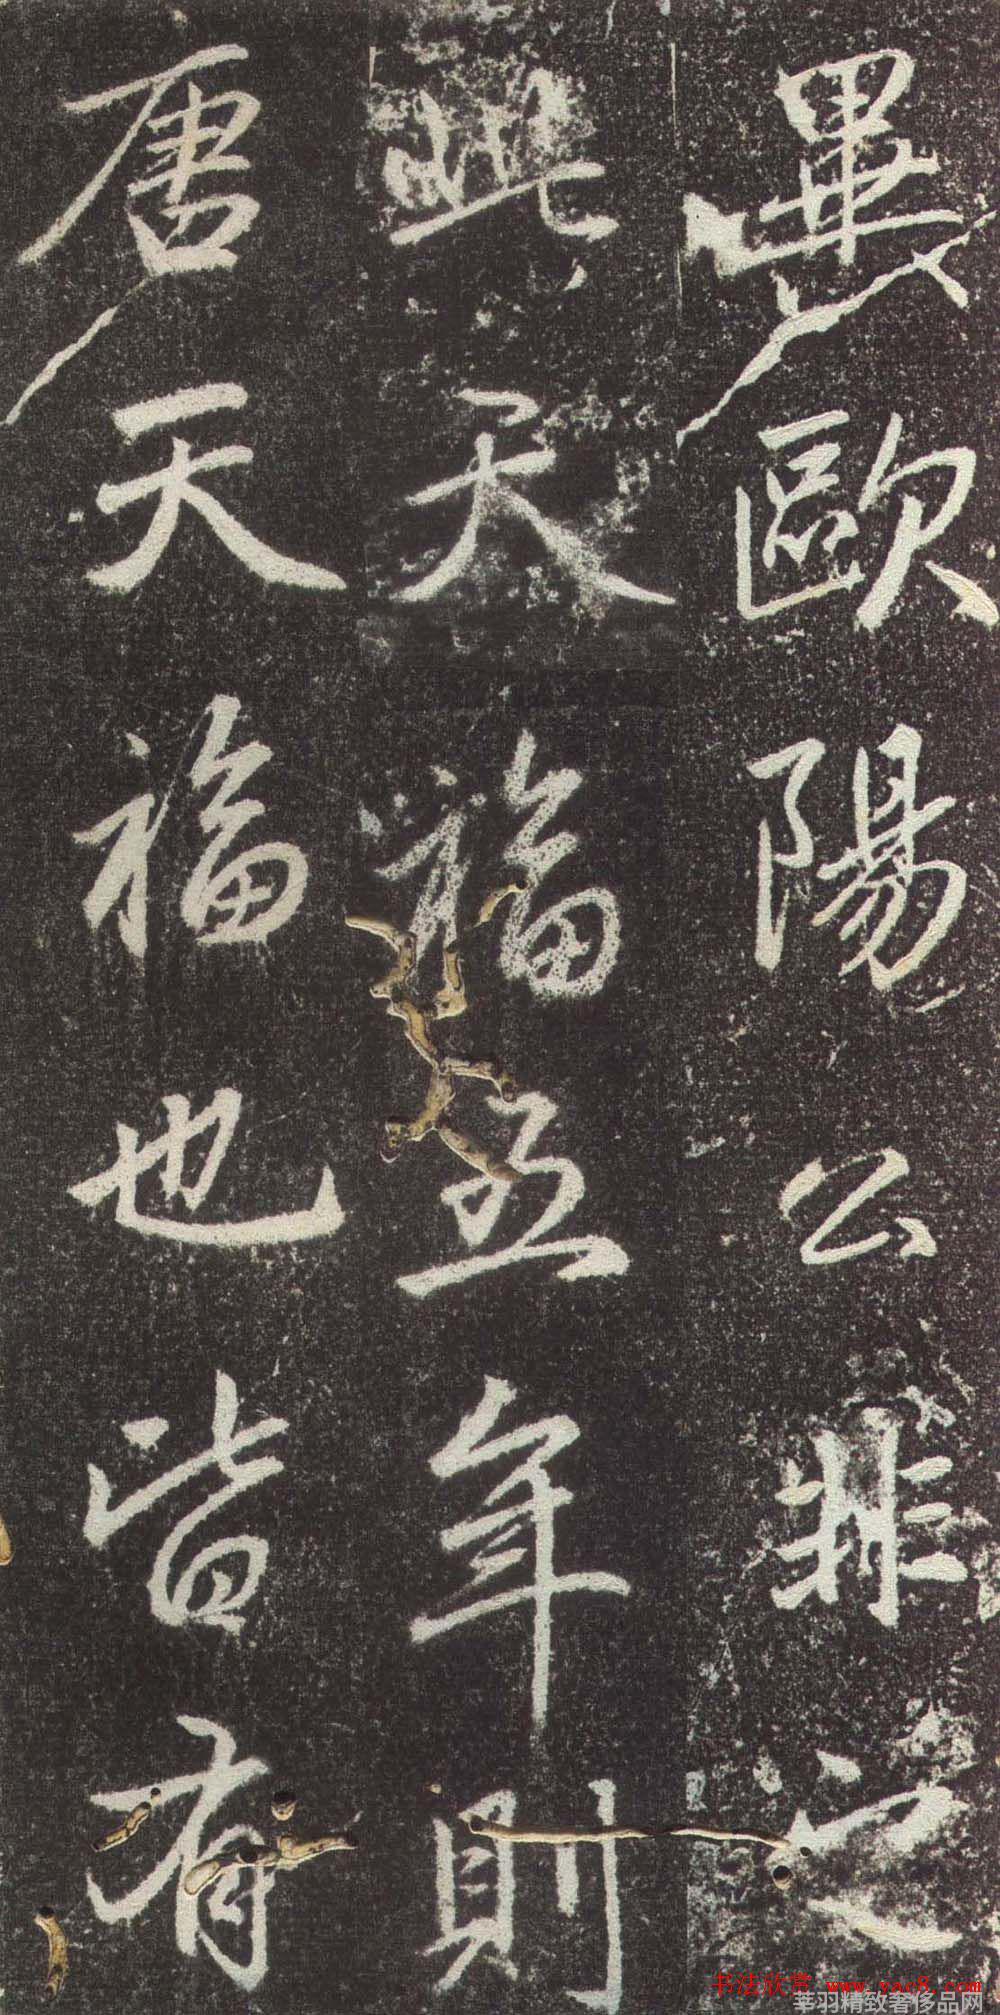 異歐陽公非之
此天福五年則
唐天福也皆有
书法欣赏 www.yac8.com
莘羽精致奢侈品网